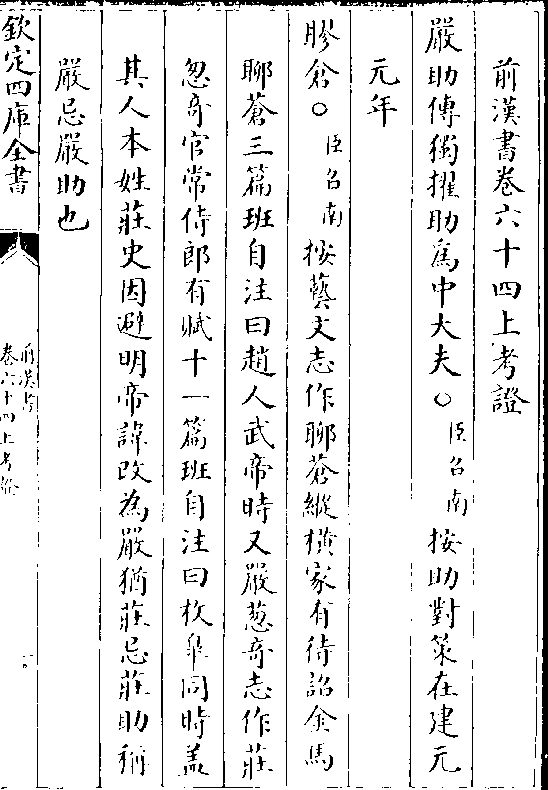 前漢書卷六十四上考證
嚴助傳獨擢助為中大夫○臣召南按助對策在建元
元年
膠倉○臣召南按藝文志作聊蒼縱橫家有待詔金馬
聊蒼三篇班自注曰趙人武帝時又嚴葱奇志作莊
怱奇官常侍郎有賦十一篇班自注曰枚皋同時盖
其人本姓莊史因避明帝諱改為嚴猶莊忌莊助稱
嚴忌嚴助也
欽定四庫全書
前漢書
卷六十四上考證